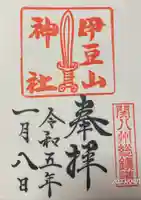 伊豆山
神社
奉拝
関八州総鎮護
令和五年
一月八日